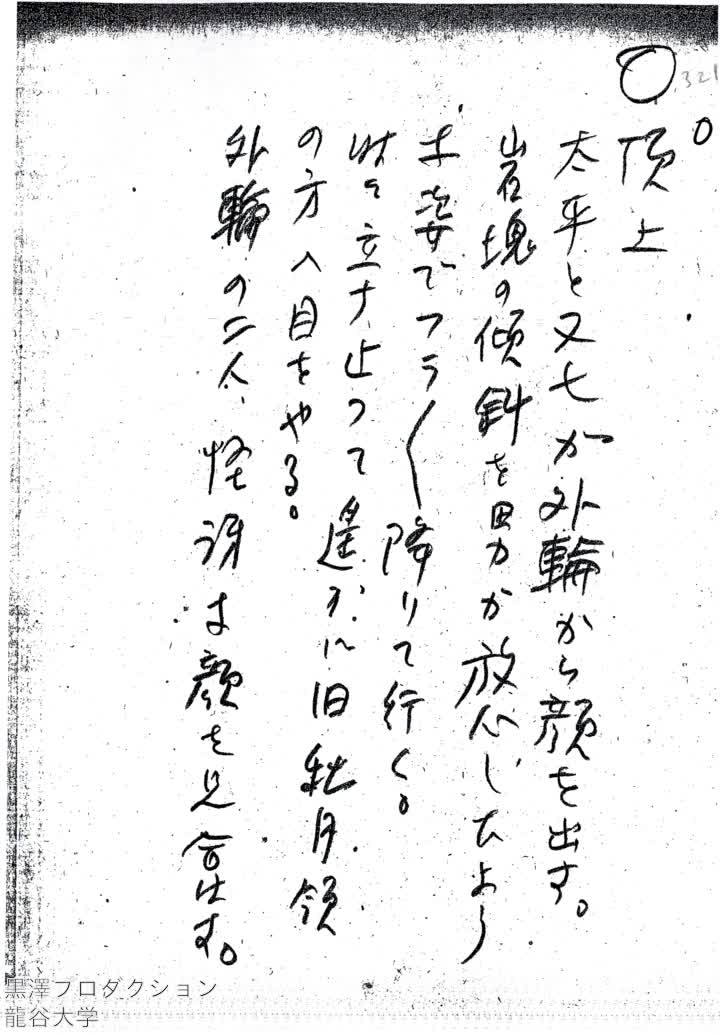 321
○頂上
太平と又七が外輪から顔を出す。
岩塊の傾斜を男が放心したよう
な姿でフラ〱降りて行く。
時々立ち止つて遥かに旧秋月領
の方へ目をやる。
外輪の二人、怪訝な顔を見合はす。
黒澤プロダクション
龍谷大学